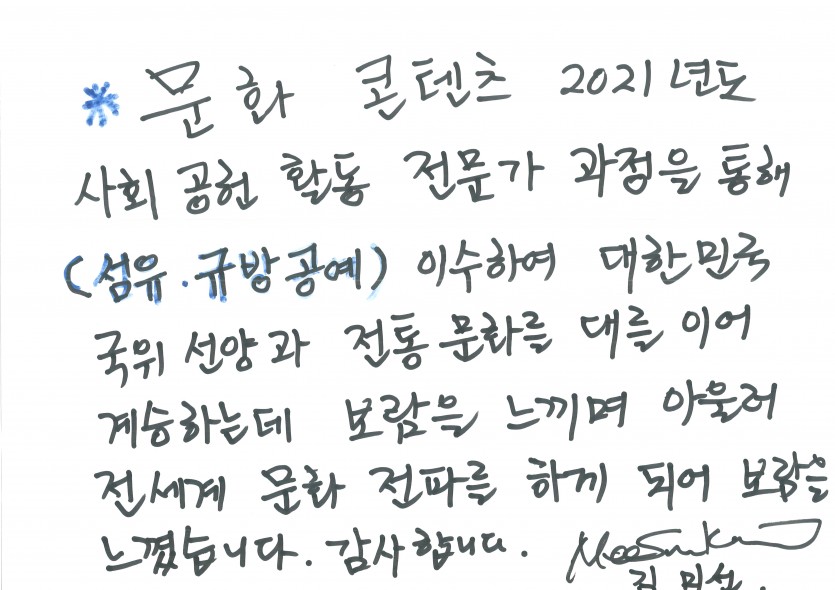 * 문화 콘텐츠 2021년도
사회 공헌 활동 전문가 과정을 통해
(섬유.규방공예) 이수하여 대한민국
국위 선양과 전통문화를 대를 이어
계승하는데 보람을 느끼며 아울러
전세계 문화 전파를 하께 되어 보람을
느꼈습니다. 감사합니다.